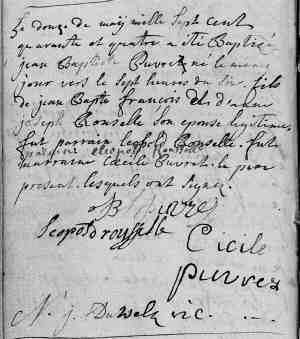 Le douze de maij mille sept cent
quarante et quatre a été Baptizé
jean Baptiste Puvrez né le meme
jour vers le sept heures du soir fils
de jean Bapte francois et d'anne
joseph Rouselle son epouse legitime
fut parrain Leopold Rouselle fut
marraine Cecile Puvrez le pere
present lesquels ont signez.
JB Puvrez
Leopold rousselle
Cicile
puvrez
N. j. Duwelz vic.